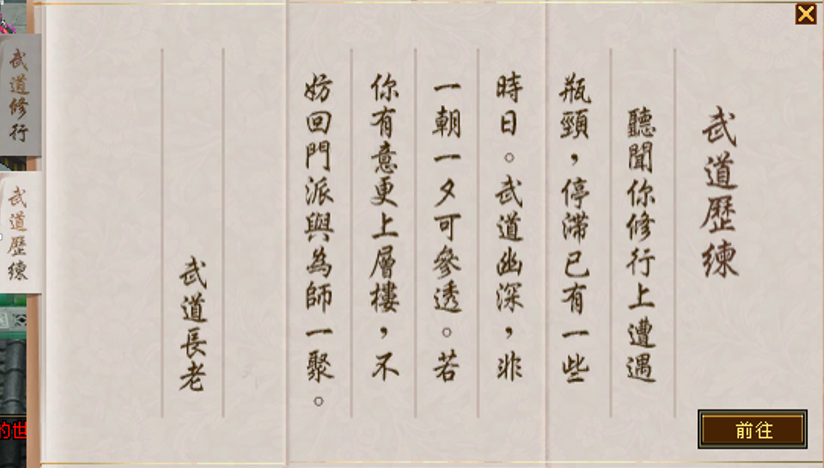 武道歷練
聽聞你修行上遭遇
瓶頸，停滯已有一些
時日。武道幽深，非
一朝一夕可參透。若
你有意更上層樓，不
妨回門派與為師一聚。
武道長老
武道修行
武道歷練
前往
的世